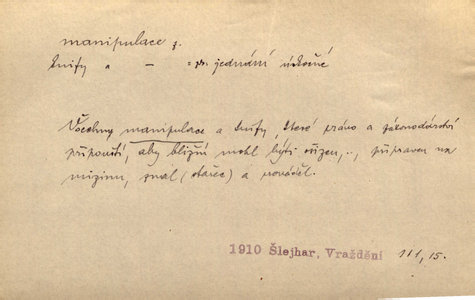 manipulace ž.
knify a — = jednání úskočné
Všechny manipulace a knify, které právo a zákonodárství
připouští, aby bližní mohl býti ožizen, .., připraven na
mizinu, znal (stařec) a prováděl.
1910 Šlejhar, Vraždění 111, 15.